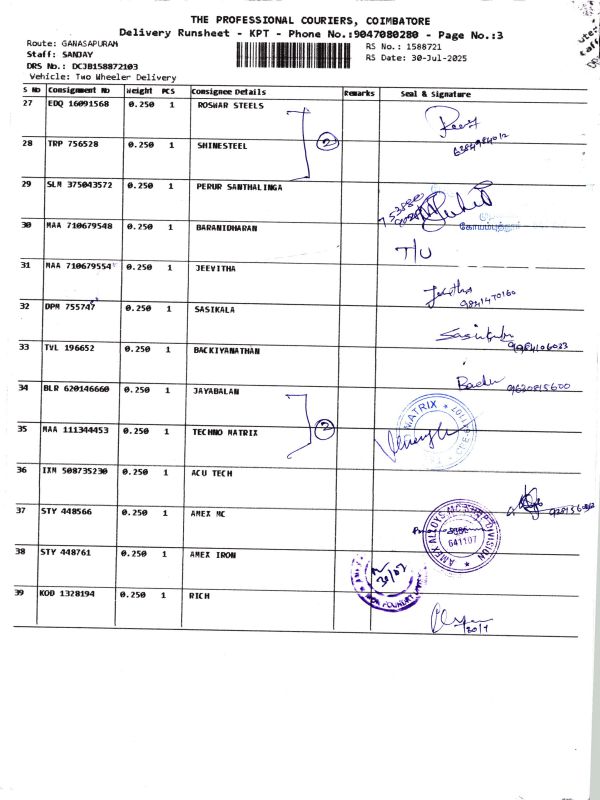 THE PROFESSIONAL COURIERS, COIMBATORE
Delivery Runsheet - KPT - Phone No.:9047080280 - Page No.:3
Route: GANASAPURAM
Staff: SANJAY
DRS No.: DCJB158872103
Vehicle: Two Wheeler Delivery
RS No.: 1588721
RS Date: 30-Jul-2025
S No Consignment No Weight PCS Consignee Details Remarks Seal & Signature
27 EDQ 16091568 0.250 1 ROSHAR STEELS
28 TRP 756528 0.250 1 SHINESTEEL 2
29 SLM 375043572 0.250 1 PERUR SANTHALINGA
கோயம்புத்தூர்
30 MAA 710679548 0.250 1 BARANIDHARAN T/U
31 MAA 710679554 0.250 1 JEEVITHA 9841470160
32 DPM 755747 0.250 1 SASIKALA
33 TVL 196652 0.250 1 BACKIYANATHAN
34 BLR 620146660 0.250 1 JAYABALAN
35 MAA 111344453 0.250 1 TECHNO MATRIX 2 MATRIX
36 IXM 508735230 0.250 1 ACU TECH
37 STY 448566 0.250 1 AMEX MC AMEX ALLOYS MC SHOP DIVISION 641107
38 STY 448761 0.250 1 AMEX IRON 30/07
39 KOD 1328194 0.250 1 RICH